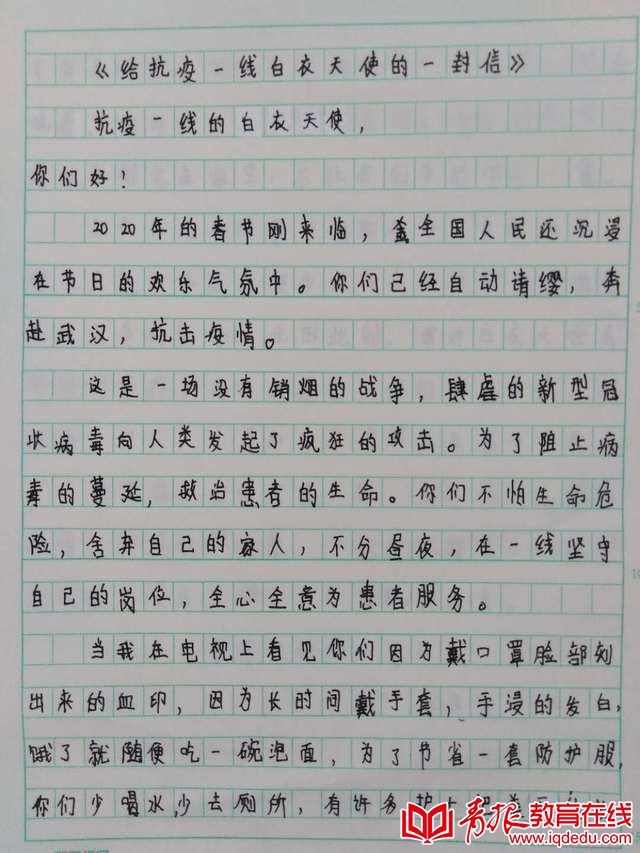 《给抗疫一线白衣天使的一封信》
抗疫一线的白衣天使，
你们好！
2020年的春节刚来临，全国人民还沉浸
在节日的欢乐气氛中。你们已经自动请缨，奔
赴武汉，抗击疫情。
这是一场没有销烟的战争，肆虐的新型冠
状病毒向人类发起了疯狂的攻击。为了阻止病
毒的蔓延，救治患者的生命。你们不怕生命危
险，舍弃自己的家人，不分昼夜，在一线坚守
自己的岗位，全心全意为患者服务。
当我在电视上看见你们因为戴口罩脸部刻
出来的血印，因为长时间戴手套，手浸的发白，
饿了就随便吃一碗泡面，为了节省一套防护服，
你们少喝水，少去厕所，有许多护士
青报教育在线
www.iqdedu.com